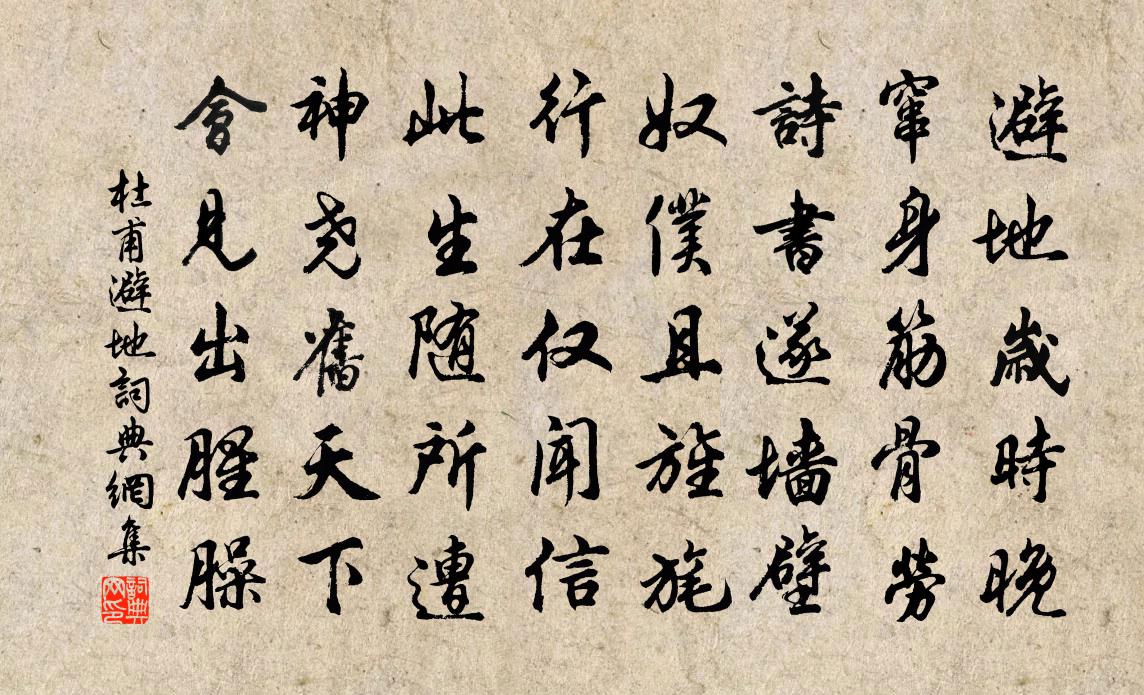 避地歲時晚
窜身筋骨勞
詩書遂墙壁
奴僕且旌旄
行在仅闻信
此生随所遭
神尧舊天下
會見出腥臊
杜甫避地詞典網集
詞典网印